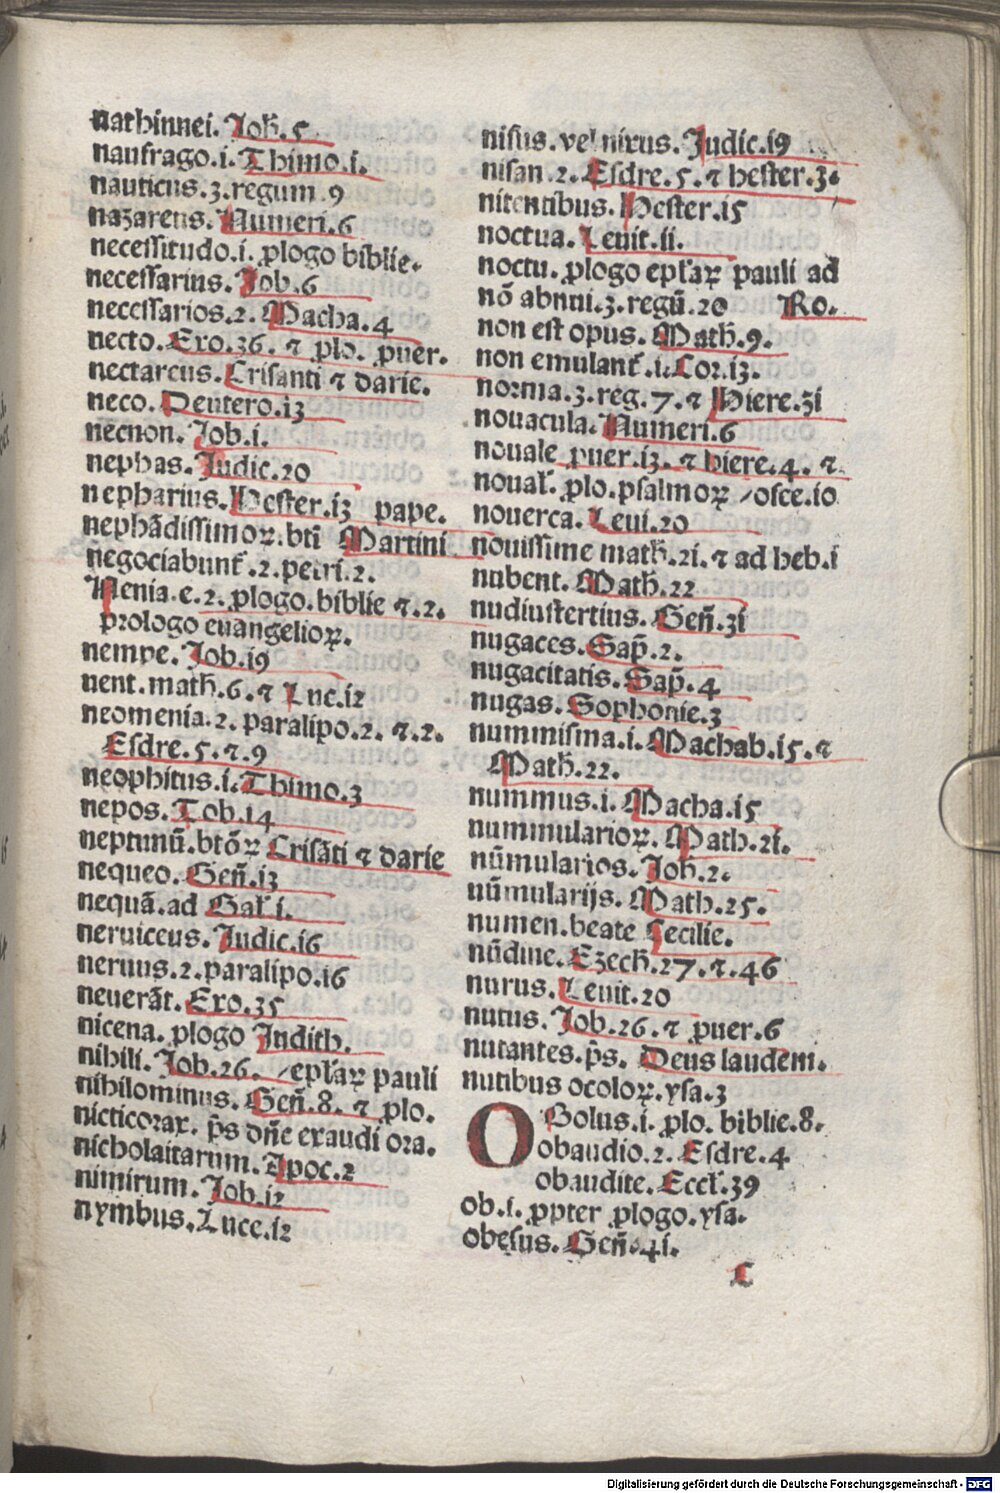 nathinnei. Job. 5
naufrago. i. Thimo. i.
nauticus. 3. regum. 9
nazareus. Numeri. 6
necessitudo. i. ꝓlogo biblie.
necessarius. Job. 6
necessarios. 2. Macha. 4
necto. Exo. 36. ⁊ ꝓlo. ꝓuer.
nectareus. Crisanti ⁊ darie.
neco. Deutero. i3
necnon. Job. i.
nephas. Judic. 20
nepharius. Hester. i3 pape.
nephādissimoꝝ. bti Martini
negociabunt̄. 2. petri. 2.
Nenia. e. 2. ꝓlogo. biblie ⁊. 2.
prologo euangelioꝝ.
nempe. Job. i9
nent. math̄. 6. ⁊ Luc. i2
neomenia. 2. paralipo. 2. ⁊. 2.
Esdre. 5. ⁊. 9
neophitus. i. Thimo. 3
nepos. Tob. i4
neptunū. btōꝝ Crisāti ⁊ darie
nequeo. Geñ. i3
nequā. ad Gal̄ i.
neruiceus. Judic. i6
neruus. 2. paralipo. i6
neuerāt. Exo. 35
nicena. ꝓlogo Judith.
nihili. Job. 26. /epl̄aꝝ pauli
nihilominus. Geñ. 8. ⁊ ꝓlo.
nicticorax. p̄s dñe exaudi ora.
nicholaitarum. Apoc. 2
nimirum. Job. i2
nymbus. Luce. i2
nisus. vel nixus. Judic. i9
nisan. 2. Esdre. 5. ⁊ hester. 3.
nitentibus. Hester. i5
noctua. Leuit. ii.
noctu. ꝓlogo epl̄aꝝ pauli ad
nō abnui. 3. regū. 20 Ro.
non est opus. Math̄. 9.
non emulant̄. i. Cor. i3.
norma. 3. reg. 7. ⁊ Hiere. 3i
nouacula. Numeri. 6
nouale ꝓuer. i3. ⁊ hiere. 4. ⁊.
noual̄. ꝓlo. psalmoꝝ /osee. io
nouerca. Leui. 20
nouissime math̄. 2i. ⁊ ad heb. i
nubent. Math̄. 22
nudiustertius. Geñ. 3i
nugaces. Sap̄. 2.
nugacitatis. Sap̄. 4
nugas. Sophonie. 3
nummisma. i. Machab. i5. ⁊
Math̄. 22.
nummus. i. Macha. i5
nummularioꝝ. Math. 2i.
nūmularios. Joh̄. 2.
nūmularijs. Math. 25.
numen. beate Cecilie.
nūdine. Ezech̄. 27. ⁊. 46
nurus. Leuit. 20
nutus. Job. 26. ⁊ ꝓuer. 6
nutantes. p̄s. Deus laudem.
nutibus ocoloꝝ. ysa. 3
OBolus. i. ꝓlo. biblie. 8.
obaudio. 2. Esdre. 4
obaudite. Eccl̄. 39
ob. i. ꝓpter ꝓlogo. ysa.
obesus. Geñ. 4i.
C
Digitalisierung gefördert durch die Deutsche Forschungsgemeinschaft - DFG